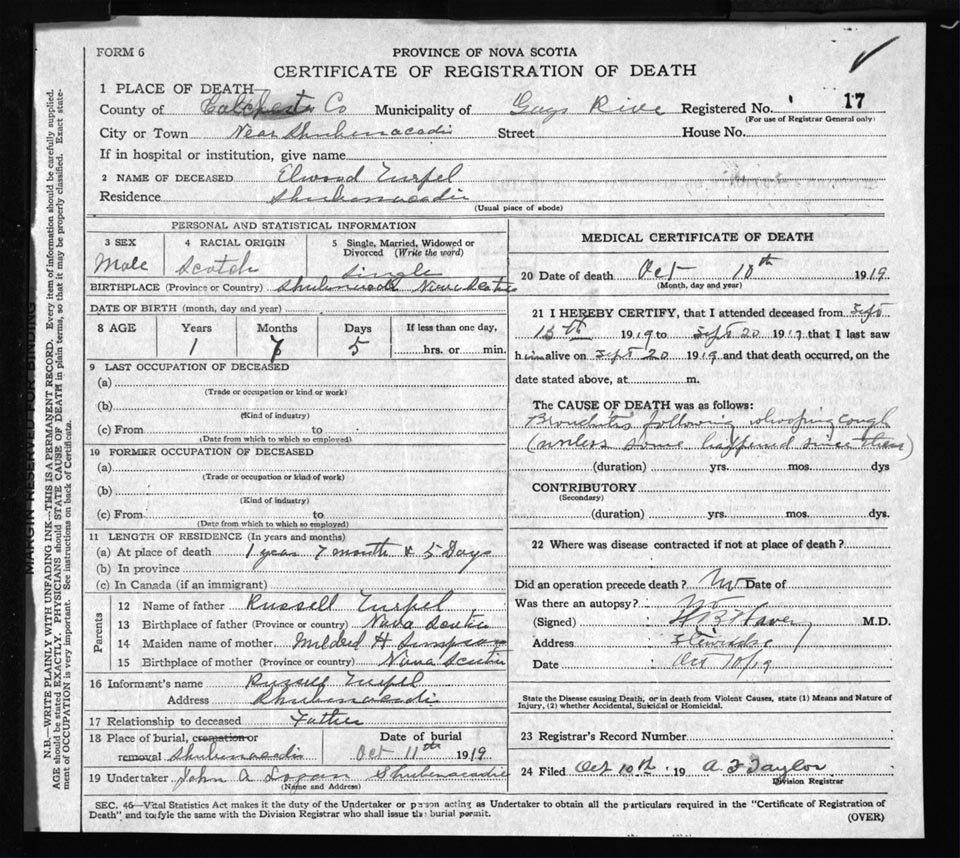 FORM 6
PROVINCE OF NOVA SCOTIA
CERTIFICATE OF REGISTRATION OF DEATH
1 PLACE OF DEATH
County of Colchester Co Municipality of Gays River Registered No. 17
(For use of Registrar General only)
City or Town Near Shubenacadie Street House No.
If in hospital or institution, give name
2 NAME OF DECEASED Elwood Turpel
Residence Shubenacadie
(Usual place of abode)
PERSONAL AND STATISTICAL INFORMATION
3 SEX 4 RACIAL ORIGIN 5 Single, Married, Widowed or Divorced (Write the word)
Male Scotch Single
BIRTHPLACE (Province or Country) Shubenacadie Nova Scotia
DATE OF BIRTH (month, day and year)
8 AGE Years Months Days If less than one day,
1 7 5 hrs. or min.
9 LAST OCCUPATION OF DECEASED
(a)
(Trade or occupation or kind or work)
(b)
(Kind of industry)
(c) From to
(Date from which to which so employed)
10 FORMER OCCUPATION OF DECEASED
(a)
(Trade or occupation or kind of work)
(b)
(Kind of industry)
(c) From to
(Date from which to which so employed)
11 LENGTH OF RESIDENCE (In years and months)
(a) At place of death 1 year 7 month & 5 Days
(b) In province
(c) In Canada (if an immigrant)
Parents
12 Name of father Russell Turpel
13 Birthplace of father (Province or country) Nova Scotia
14 Maiden name of mother Mildred H Simpson
15 Birthplace of mother (Province or country) Nova Scotia
16 Informant's name Russell Turpel
Address Shubenacadie
17 Relationship to deceased Father
18 Place of burial, cremation or removal Shubenacadie Date of burial Oct 11th 1919
19 Undertaker John A Logan Shubenacadie
(Name and Address)
MEDICAL CERTIFICATE OF DEATH
20 Date of death Oct 10th 1919
(Month, day and year)
21 I HEREBY CERTIFY, that I attended deceased from Sept
15th 1919 to Sept 20 1919 that I last saw
him alive on Sept 20 1919 and that death occurred, on the
date stated above, at m.
The CAUSE OF DEATH was as follows:
Bronchitis following whooping cough
(unless some happened since then)
(duration) yrs. mos. dys
CONTRIBUTORY
(Secondary)
(duration) yrs. mos. dys.
22 Where was disease contracted if not at place of death?
Did an operation precede death? No Date of
Was there an autopsy? No
(Signed) M.D.
Address
Date Oct 10/19
State the Disease causing Death, or in death from Violent Causes, state (1) Means and Nature of
Injury, (2) whether Accidental, Suicidal or Homicidal.
23 Registrar's Record Number
24 Filed Oct 10th 19 A F Taylor
Division Registrar
SEC. 46—Vital Statistics Act makes it the duty of the Undertaker or person acting as Undertaker to obtain all the particulars required in the "Certificate of Registration of
Death" and to fyle the same with the Division Registrar who shall issue the burial permit.
(OVER)
MARGIN RESERVED FOR BINDING
N.B.—WRITE PLAINLY WITH UNFADING INK—THIS IS A PERMANENT RECORD. Every item of information should be carefully supplied.
AGE should be stated EXACTLY. PHYSICIANS should STATE CAUSE OF DEATH in plain terms, so that it may be properly classified. Exact state-
ment of OCCUPATION is very important. See instructions on back of Certificate.